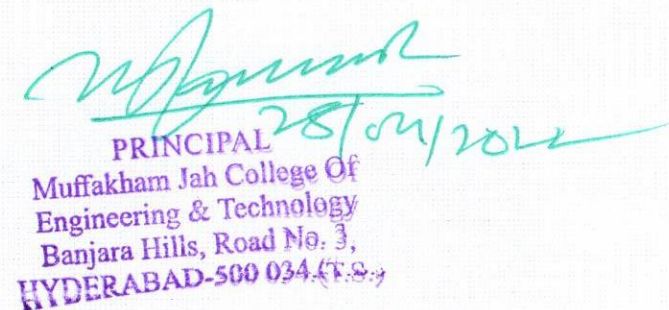 28/04/2022
PRINCIPAL
Muffakham Jah College Of
Engineering & Technology
Banjara Hills, Road No. 3,
HYDERABAD-500 034.(T.S.)